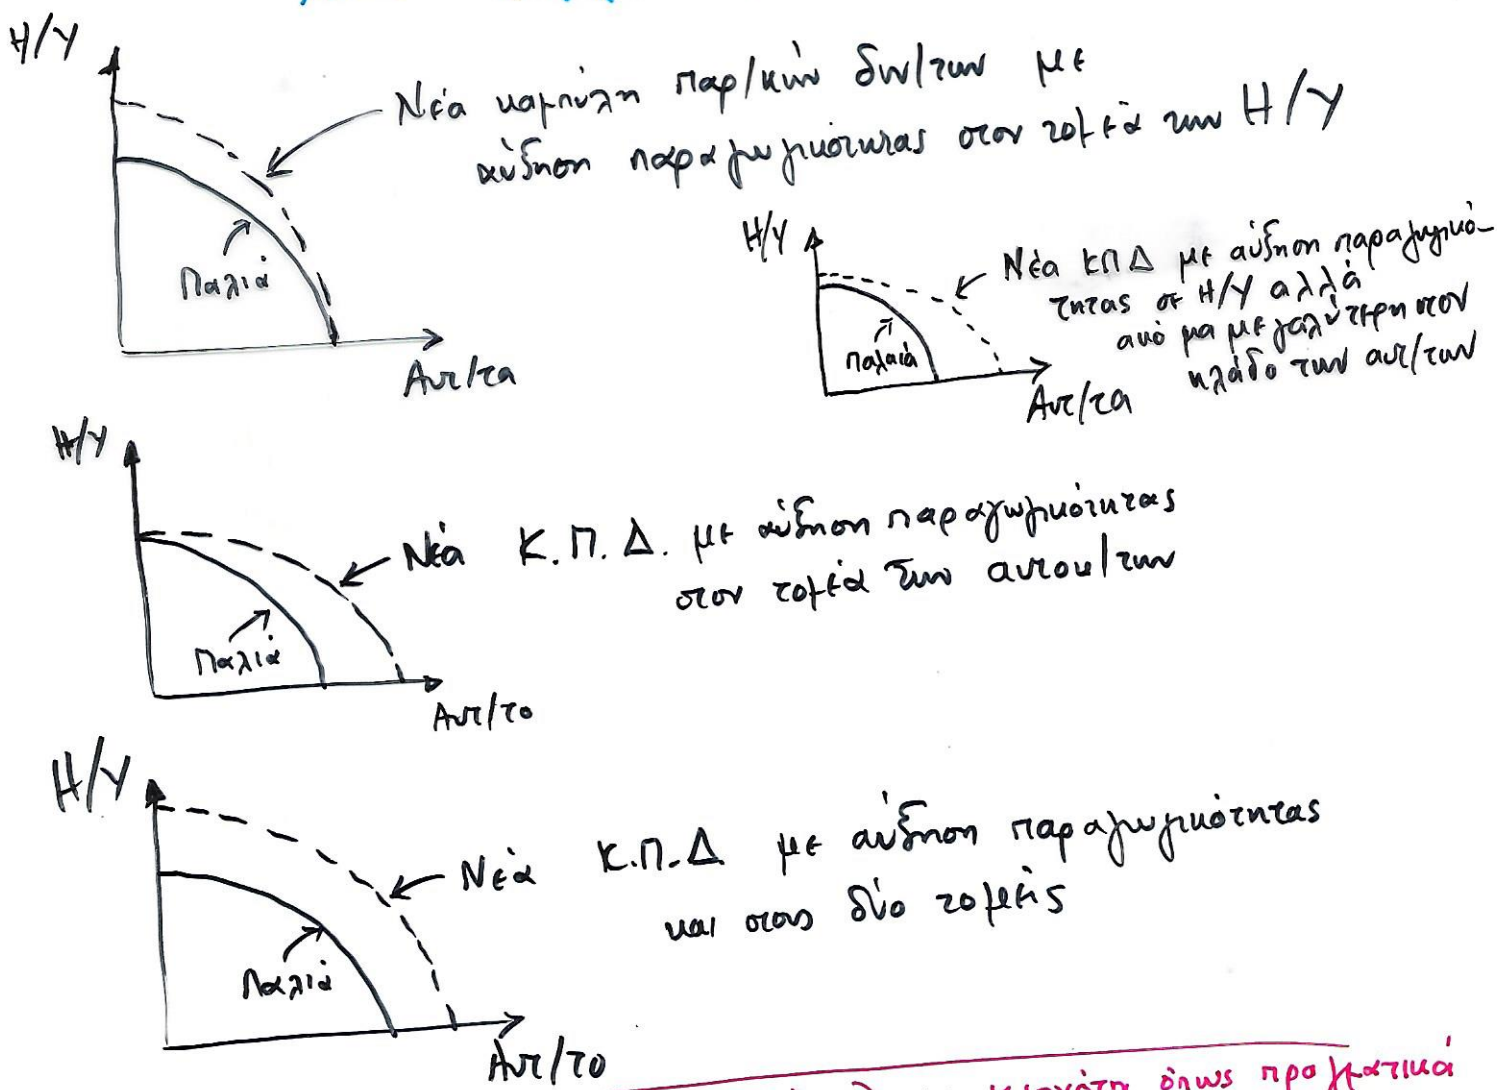 Η/Υ
Νέα καμπύλη παρ/κών δυν/των με
αύξηση παραγωγικότητας στον τομέα των Η/Υ
Παλιά
Αυτ/τα
Η/Υ
Νέα ΚΠΔ με αύξηση παραγωγικό-
τητας σε Η/Υ αλλά
ακόμα μεγαλύτερη στον
κλάδο των αυτ/των
παλαιά
Αυτ/τα
Η/Υ
Νέα Κ.Π.Δ. με αύξηση παραγωγικότητας
στον τομέα των αυτοκ/των
Παλιά
Αυτ/το
Η/Υ
Νέα Κ.Π.Δ με αύξηση παραγωγικότητας
και στους δύο τομείς
Παλιά
Αυτ/το
όπως πραγματικά